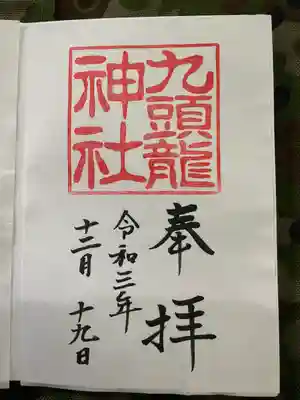 九頭龍
神社
奉拝
令和三年
十二月十九日